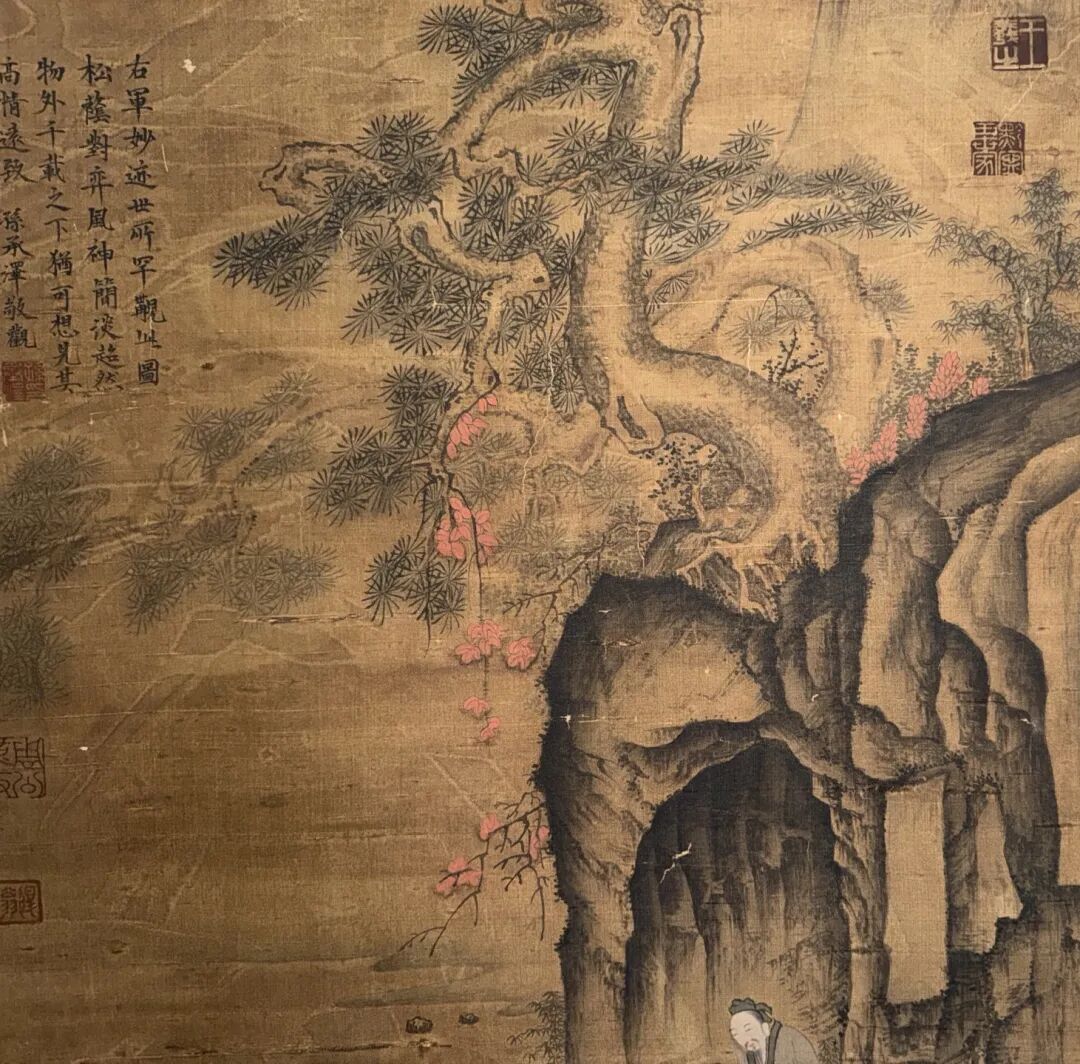 右軍妙迹世所罕覯此圖
松蔭對弈風神簡淡超然
物外千載之下猶可想見其
高情遠致 孫承澤敬觀